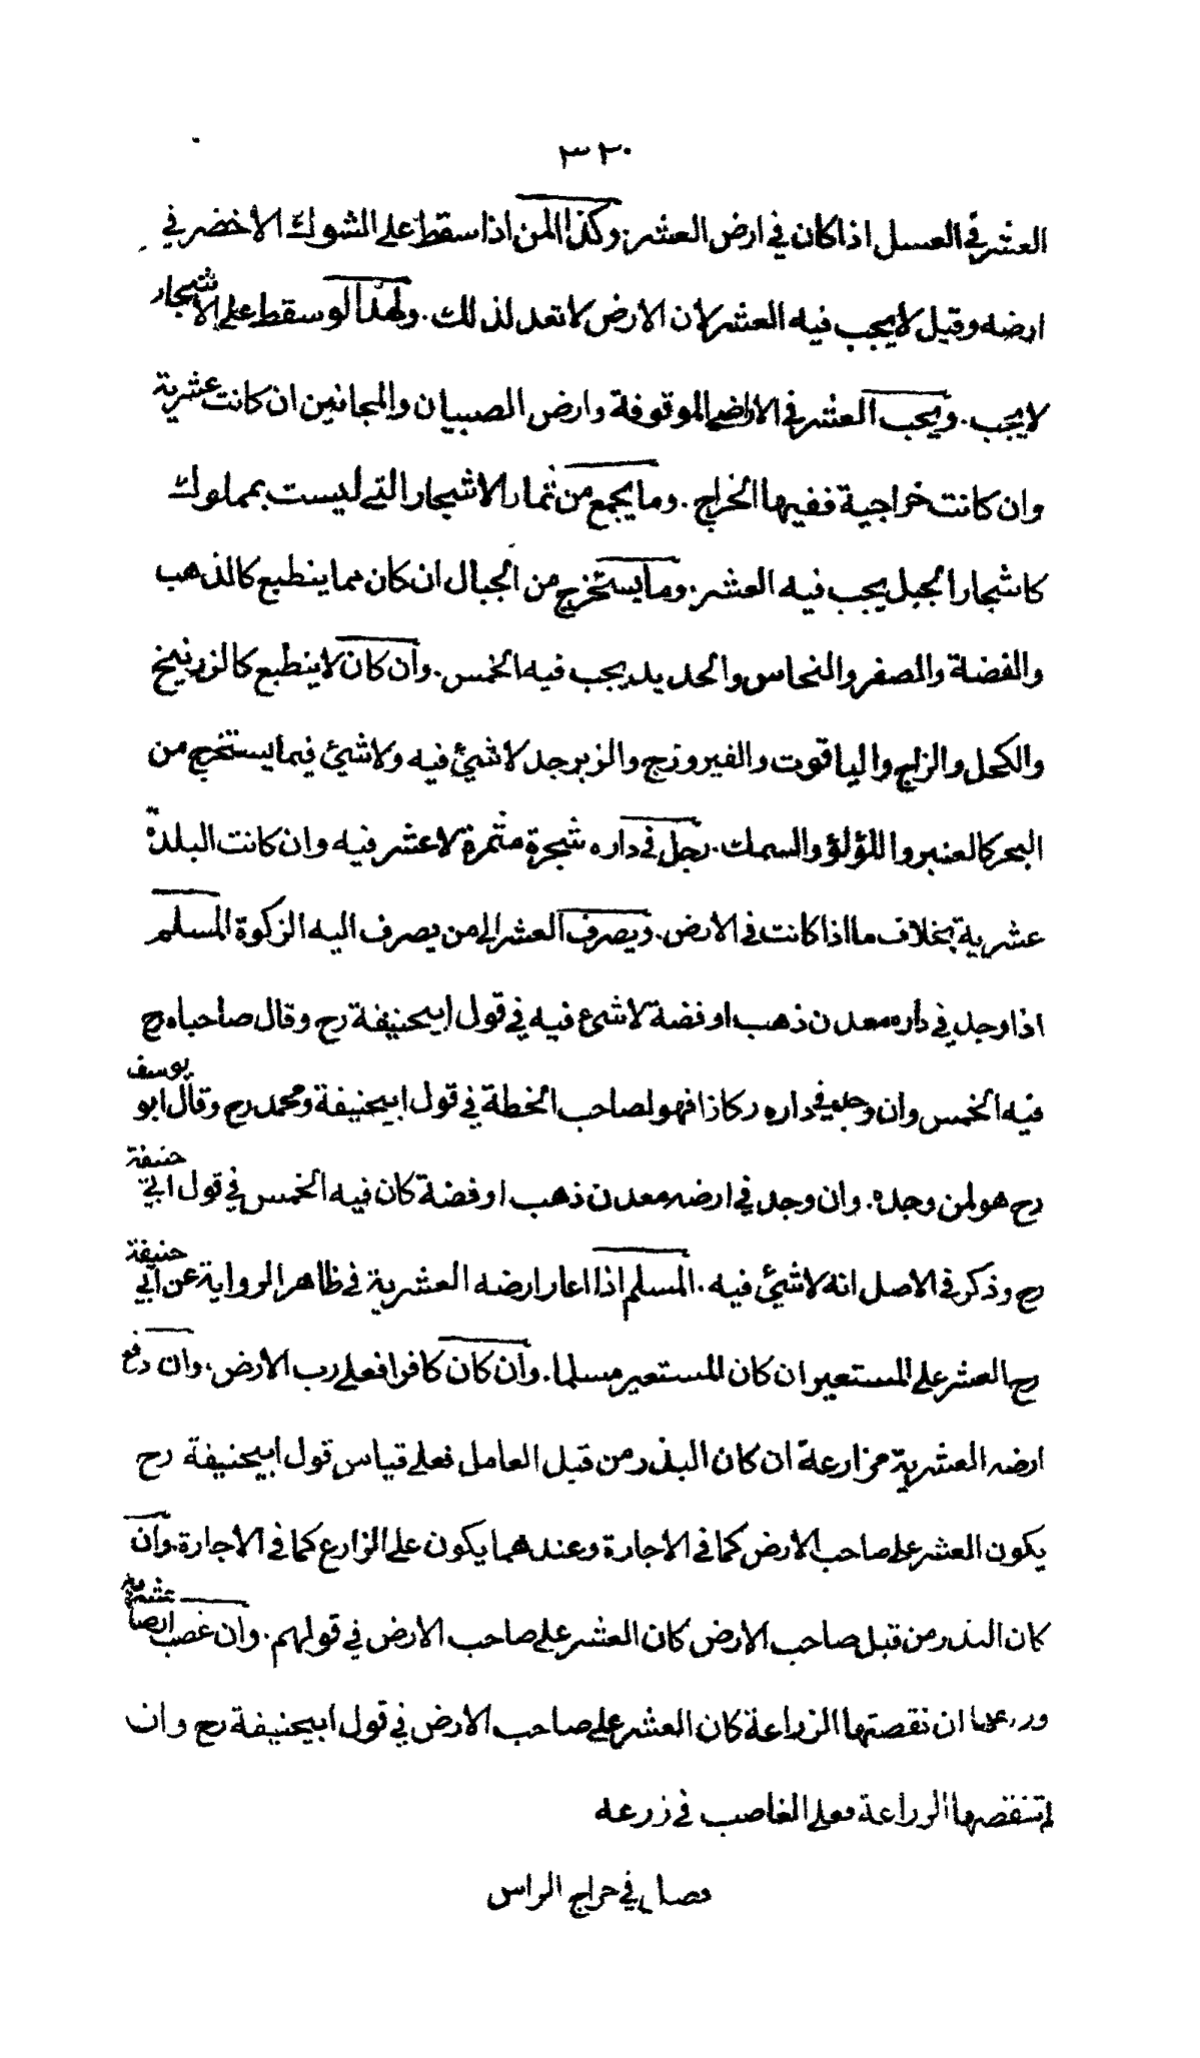 ٣٢٠
العشر فى العسل اذا كان في ارض العشر. وكذا المن اذا سقط على الشوك الاخضر في
ارضه وقيل لا يجب فيه العشر لان الارض لا تعد لذلك. ولهذا لو سقط على الاشجار
لا يجب. ويجب العشر فى الاراضى الموقوفة وارض الصبيان والمجانين ان كانت عشرية
وان كانت خراجية ففيها الخراج. وما يجمع من ثمار الاشجار التى ليست بمملوك
كاشجار الجبل يجب فيه العشر. وما يستخرج من الجبال ان كان مما ينطبع كالذهب
والفضة والصفر والنحاس والحديد يجب فيه الخمس. وان كان لا ينطبع كالزرنيخ
والكحل والزاج والياقوت والفيروزج والزبرجد لا شئ فيه ولا شئ فيما يستخرج من
البحر كالعنبر واللؤلؤ والسمك. رجل فى داره شجرة مثمرة لا عشر فيه وان كانت البلدة
عشرية بخلاف ما اذا كانت فى الارض. ويصرف العشر الى من يصرف اليه الزكوة المسلم
اذا وجد في داره معدن ذهب او فضة لا شئ فيه في قول ابيحنيفة رح وقال صاحباه رح
فيه الخمس وان وجد في داره ركازا فهو لصاحب الخطة في قول ابيحنيفة ومحمد رح وقال ابو يوسف
رح هو لمن وجده. وان وجد في ارضه معدن ذهب او فضة كان فيه الخمس في قول ابي حنيفة
رح وذكر فى الاصل انه لا شئ فيه. المسلم اذا اعار ارضه العشرية فى ظاهر الرواية عن ابي حنيفة
رح العشر على المستعير ان كان المستعير مسلما. وان كان كافرا فعلى رب الارض. وان دفع
ارضه العشرية مزارعة ان كان البذر من قبل العامل فعلى قياس قول ابيحنيفة رح
يكون العشر على صاحب الارض كما فى الاجارة وعندهما يكون على الزارع كما فى الاجارة. وان
كان البذر من قبل صاحب الارض كان العشر على صاحب الارض في قولهم. وان غصب ارضا عشرية
وزرعها ان نقصتها الزراعة كان العشر على صاحب الارض في قول ابيحنيفة رح وان
لم تنقصها الزراعة فعلى الغاصب فى زرعه
فصل في خراج الراس